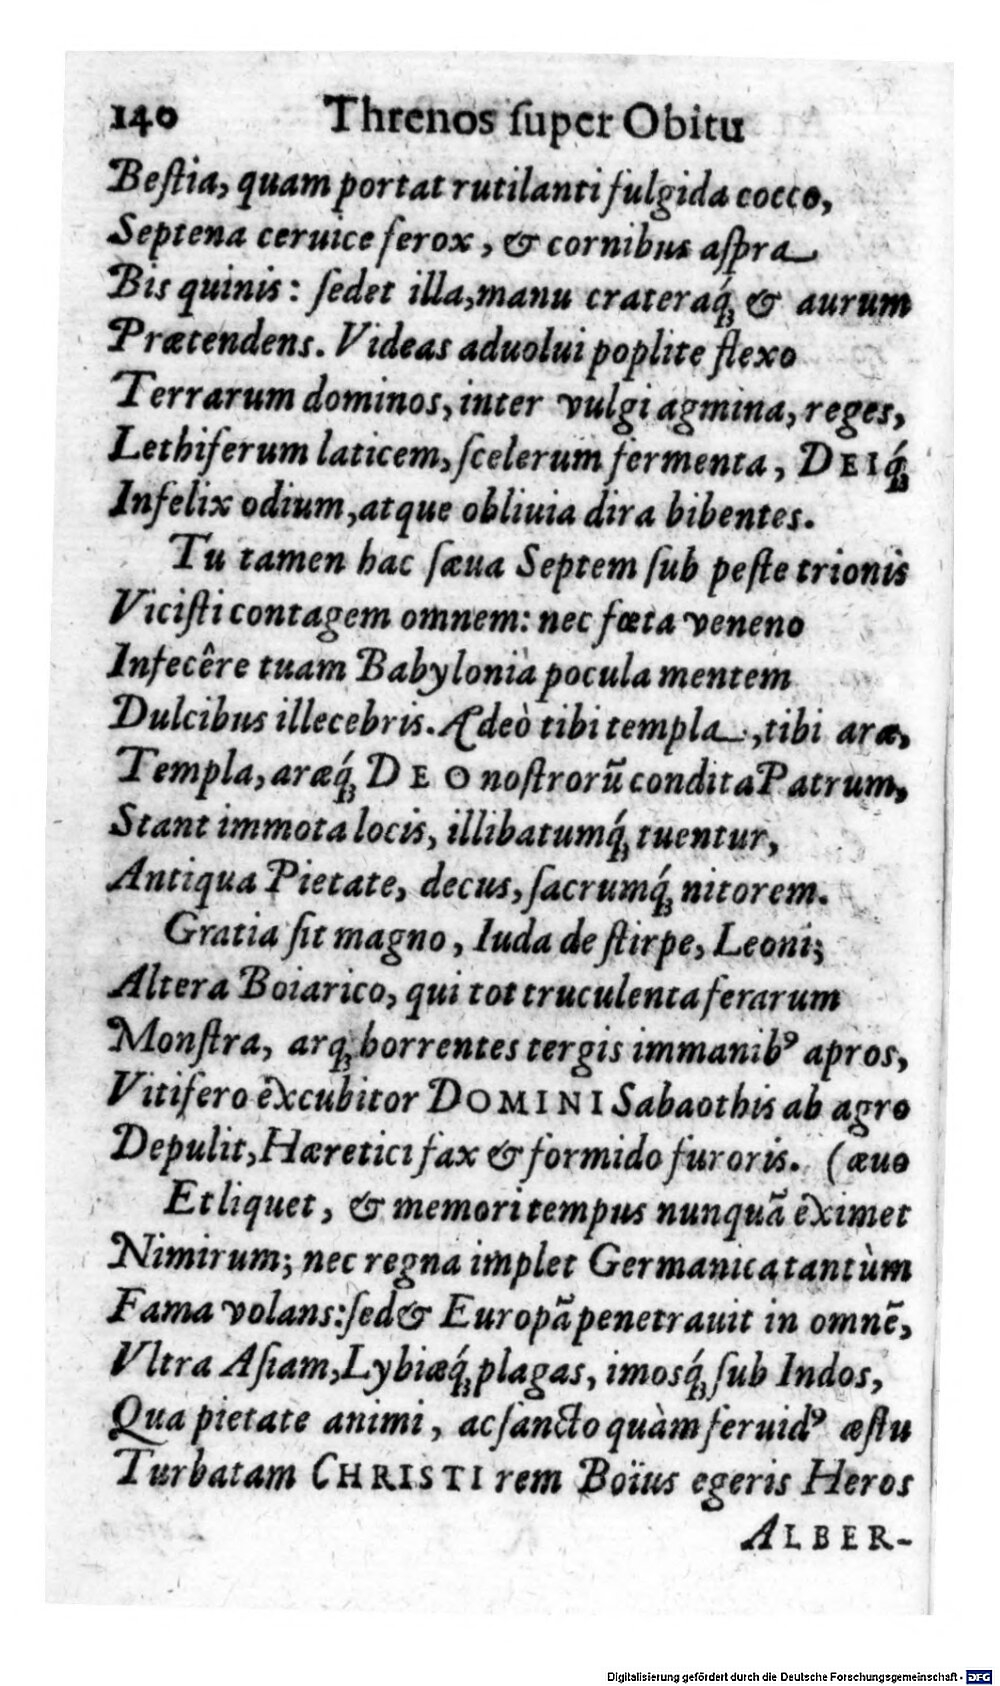 140 Threnos ſuper Obitu
Beſtia, quam portat rutilanti fulgida cocco,
Septena ceruice ferox, & cornibus aſpra
Bis quinis: ſedet illa, manu crateraq́; & aurum
Prætendens. Videas aduolui poplite flexo
Terrarum dominos, inter vulgi agmina, reges,
Lethiferum laticem, ſcelerum fermenta, DEIq́;
Infelix odium, atque obliuia dira bibentes.
Tu tamen hac ſæua Septem ſub peſte trionis
Viciſti contagem omnem: nec fœta veneno
Infecêre tuam Babylonia pocula mentem
Dulcibus illecebris. Adeò tibi templa, tibi aræ,
Templa, aræq́; DEO noſtrorũ condita Patrum,
Stant immota locis, illibatumq́; tuentur,
Antiqua Pietate, decus, ſacrumq́; nitorem.
Gratia ſit magno, Iuda de ſtirpe, Leoni;
Altera Boiarico, qui tot truculenta ferarum
Monſtra, atq; horrentes tergis immanibꝰ apros,
Vitifero excubitor DOMINI Sabaothis ab agro
Depulit, Hæretici fax & formido furoris. (æuo
Et liquet, & memori tempus nunquã eximet
Nimirum; nec regna implet Germanica tantùm
Fama volans: ſed & Europã penetrauit in omnẽ,
Vltra Aſiam, Lybiæq́; plagas, imosq́; ſub Indos,
Qua pietate animi, ac ſancto quàm feruidꝰ æſtu
Turbatam CHRISTI rem Boïus egeris Heros
ALBER-
Digitalisierung gefördert durch die Deutsche Forschungsgemeinschaft - DFG